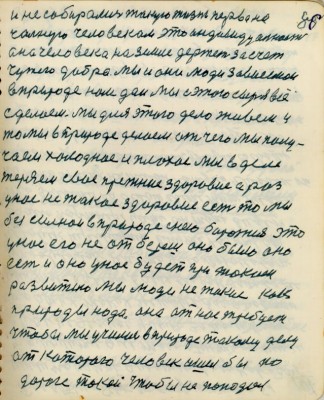 86
и не собирались такую жизнь первона
чалную человеком это индивидуалного
она человека на земле держет за счет
чужого добра. мы и они люди зависемои
в природе нам дан мы с этого сырья всё
сделаем. мы для этого дело живем и
то мы в природе делаем от чего мы полу-
чаем холодное и плохое мы в деле
теряем свое прежние здоровие а раз
уное не такое здоровие есть то мы
без сильной в природе с нею боромся это
уное его не отберем оно было оно
есть и оно уное будет при таком
развитию мы люди не такие как
природы нада. она от нас требует
чтобы мы учили в природе такому делу
от которого человек имел бы по
дороге такой чтобы не попадал